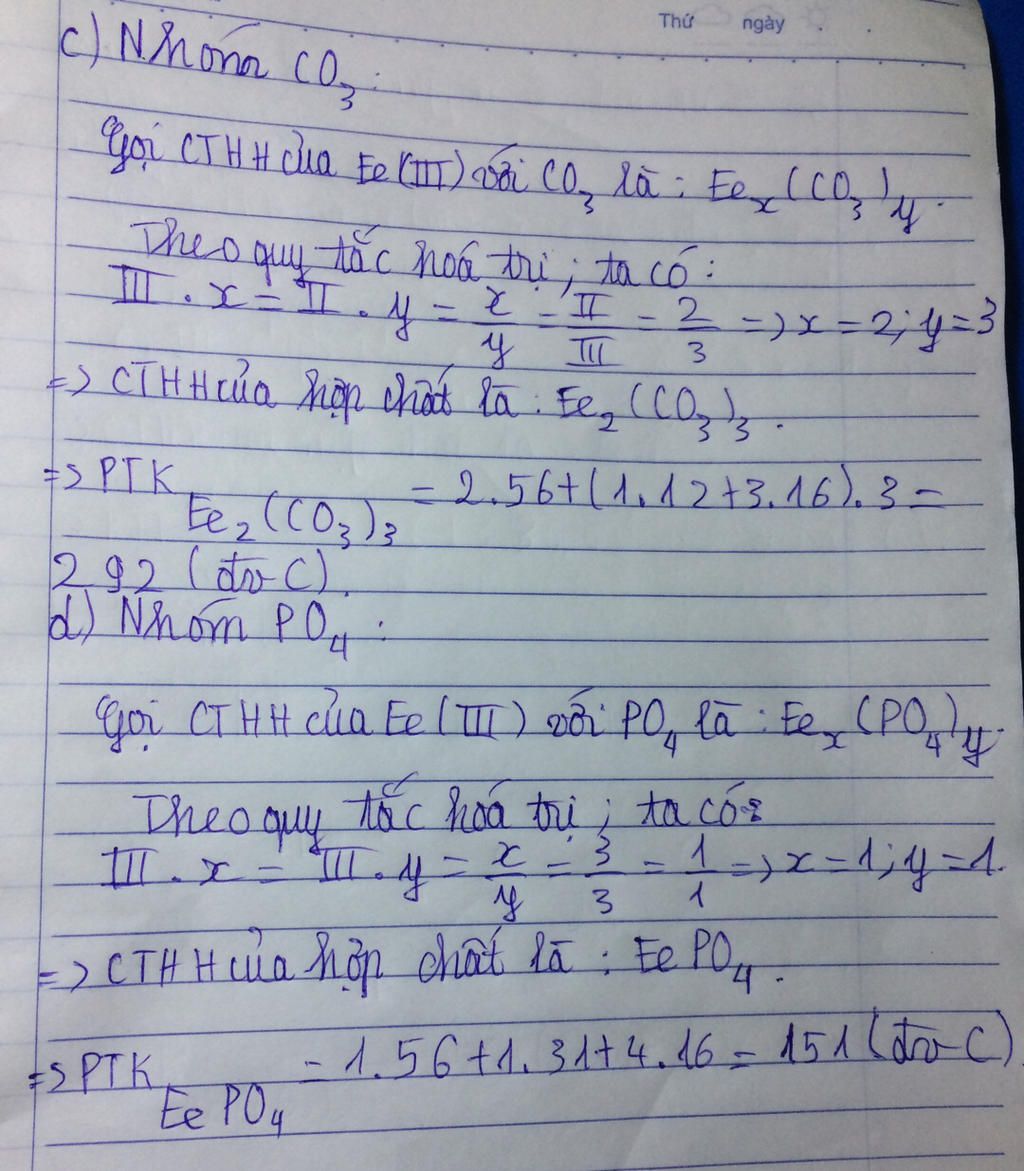 Thứ ngày
c) Nhóm CO₃ :
Gọi CTHH của Fe (III) với CO₃ là : Feₓ(CO₃)y.
Theo quy tắc hoá trị ; ta có :
III . x = II . y = x/y = II/III = 2/3 => x = 2; y = 3
=> CTHH của hợp chất là : Fe₂(CO₃)₃.
=> PTK Fe₂(CO₃)₃ = 2.56+(1.12+3.16).3 =
292 (đv C).
d.) Nhóm PO₄ :
Gọi CTHH của Fe (III) với PO₄ là : Feₓ(PO₄)y.
Theo quy tắc hoá trị ; ta có :
III . x = III . y = x/y = 3/3 = 1/1 => x = 1; y = 1.
=> CTHH của hợp chất là : FePO₄.
=> PTK FePO₄ = 1.56+1.31+4.16 = 151 (đv C)